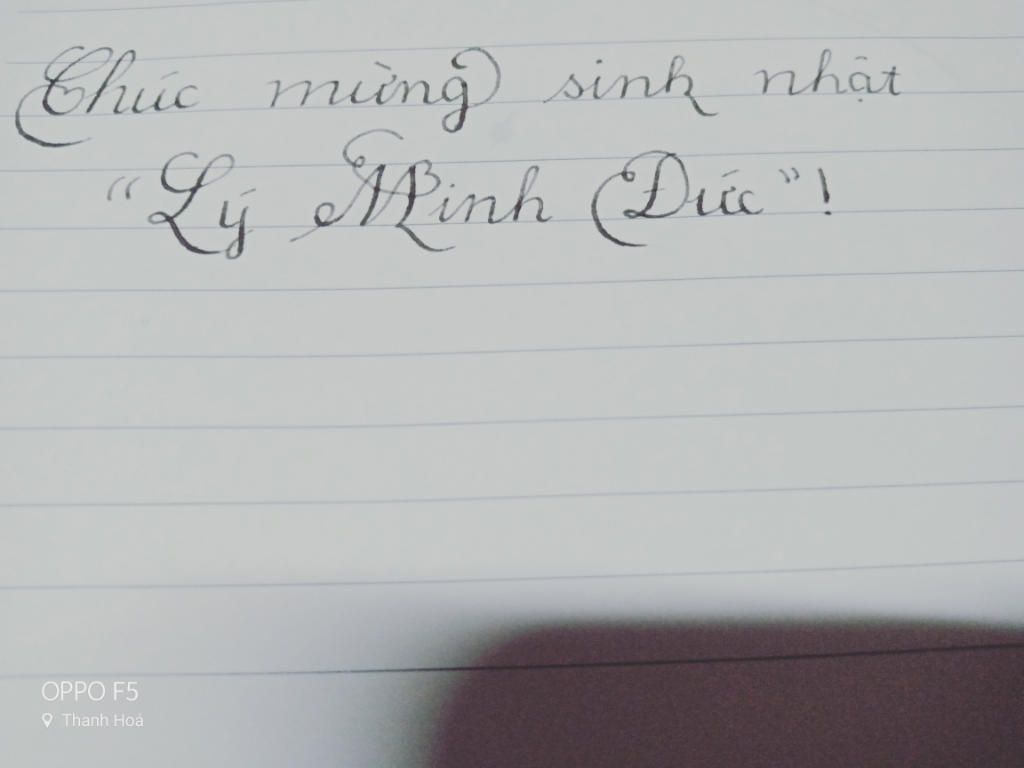 Chúc mừng sinh nhật
"Lý Minh Đức"!
OPPO F5
Thanh Hoá